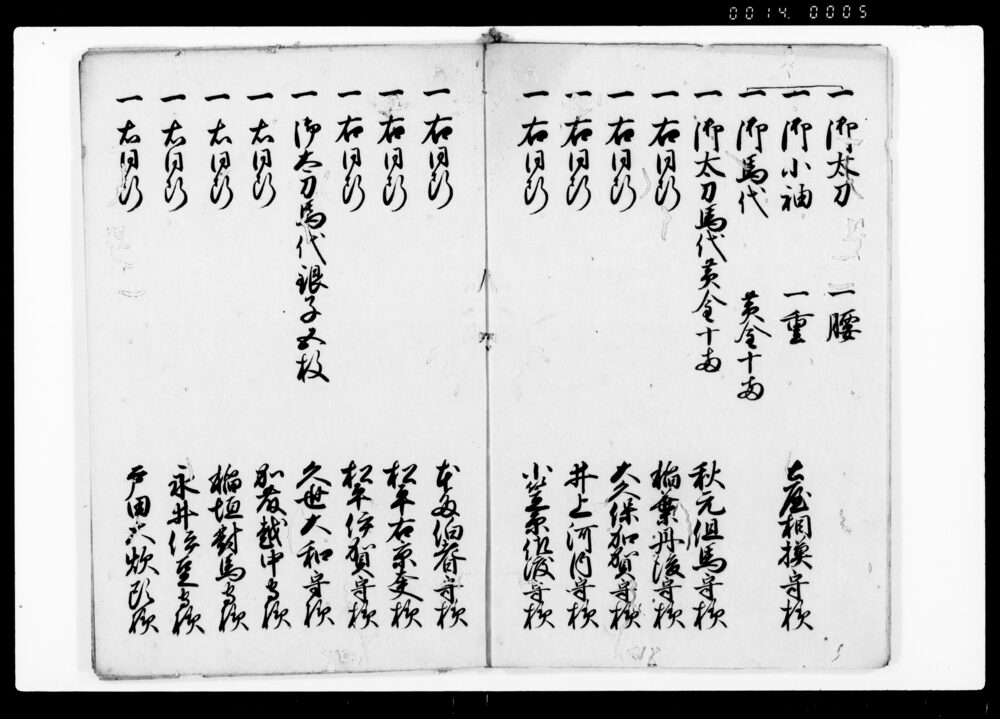 0014. 0005
一 御太刀 一腰
一 御小袖 一重 土屋相模守様
一 御馬代 黄金十両
一 御太刀馬代黄金十両 秋元但馬守様
一 右同断 稲葉丹後守様
一 右同断 大久保加賀守様
一 右同断 井上河内守様
一 右同断 小笠原佐渡守様
一 右同断 本多伯耆守様
一 右同断 松平右京大夫様
一 右同断 松平伊賀守様
一 御太刀馬代銀子五枚 久世大和守様
一 右同断 加藤越中守様
一 右同断 稲垣対馬守様
一 右同断 永井伊豆守様
一 右同断 戸田大炊頭様